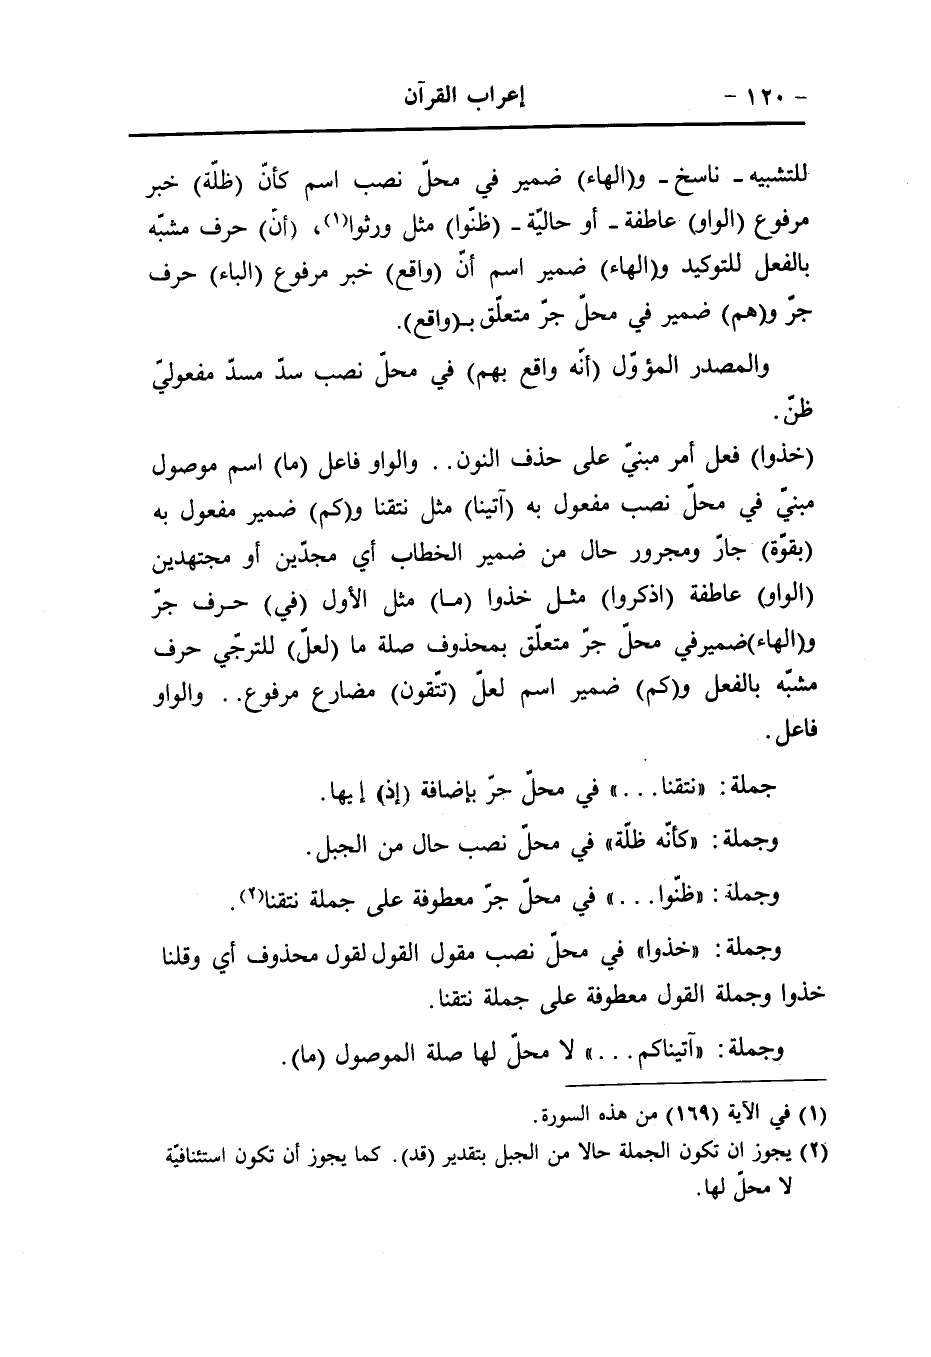 - ١٢٠ - إعراب القرآن
للتشبيه - ناسخ - و(الهاء) ضمير في محلّ نصب اسم كأنّ (ظلّة) خبر
مرفوع (الواو) عاطفة - أو حاليّة - (ظنّوا) مثل ورثوا(١)، (أنّ) حرف مشبّه
بالفعل للتوكيد و(الهاء) ضمير اسم أنّ (واقع) خبر مرفوع (الباء) حرف
جرّ و(هم) ضمير في محلّ جرّ متعلّق بـ(واقع).
والمصدر المؤوّل (أنّه واقع بهم) في محلّ نصب سدّ مسدّ مفعوليّ
ظنّ.
(خذوا) فعل أمر مبنيّ على حذف النون.. والواو فاعل (ما) اسم موصول
مبنيّ في محلّ نصب مفعول به (آتينا) مثل نتقنا و(كم) ضمير مفعول به
(بقوّة) جارّ ومجرور حال من ضمير الخطاب أي مجدّين أو مجتهدين
(الواو) عاطفة (اذكروا) مثل خذوا (ما) مثل الأول (في) حرف جرّ
و(الهاء)ضميرفي محلّ جرّ متعلّق بمحذوف صلة ما (لعلّ) للترجّي حرف
مشبّه بالفعل و(كم) ضمير اسم لعلّ (تتّقون) مضارع مرفوع.. والواو
فاعل.
جملة: «نتقنا...» في محلّ جرّ بإضافة (إذ) إيها.
وجملة: «كأنّه ظلّة» في محلّ نصب حال من الجبل.
وجملة: «ظنّوا...» في محلّ جرّ معطوفة على جملة نتقنا(٢).
وجملة: «خذوا» في محلّ نصب مقول القول لقول محذوف أي وقلنا
خذوا وجملة القول معطوفة على جملة نتقنا.
وجملة: «آتيناكم...» لا محلّ لها صلة الموصول (ما).
(١) في الآية (١٦٩) من هذه السورة.
(٢) يجوز ان تكون الجملة حالا من الجبل بتقدير (قد). كما يجوز أن تكون استئنافيّة
لا محلّ لها.